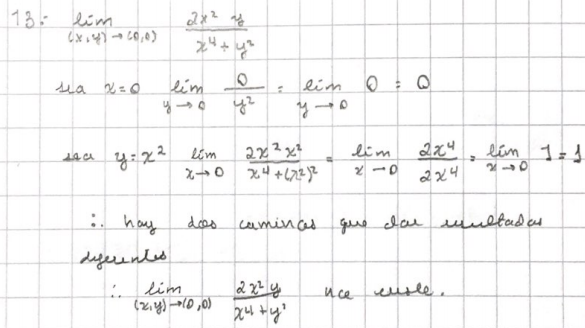 13.- lím_{(x,y)→(0,0)} 2x² y / (x⁴ + y²)
sea x=0 lím_{y→0} 0/y² = lím_{y→0} 0 = 0
sea y=x² lím_{x→0} 2x² x² / (x⁴+(x²)²) = lím_{x→0} 2x⁴ / 2x⁴ = lím_{x→0} 1 = 1
∴ hay dos caminos que dan resultados
diferentes
∴ lím_{(x,y)→(0,0)} 2x² y / (x⁴+y²) no existe.